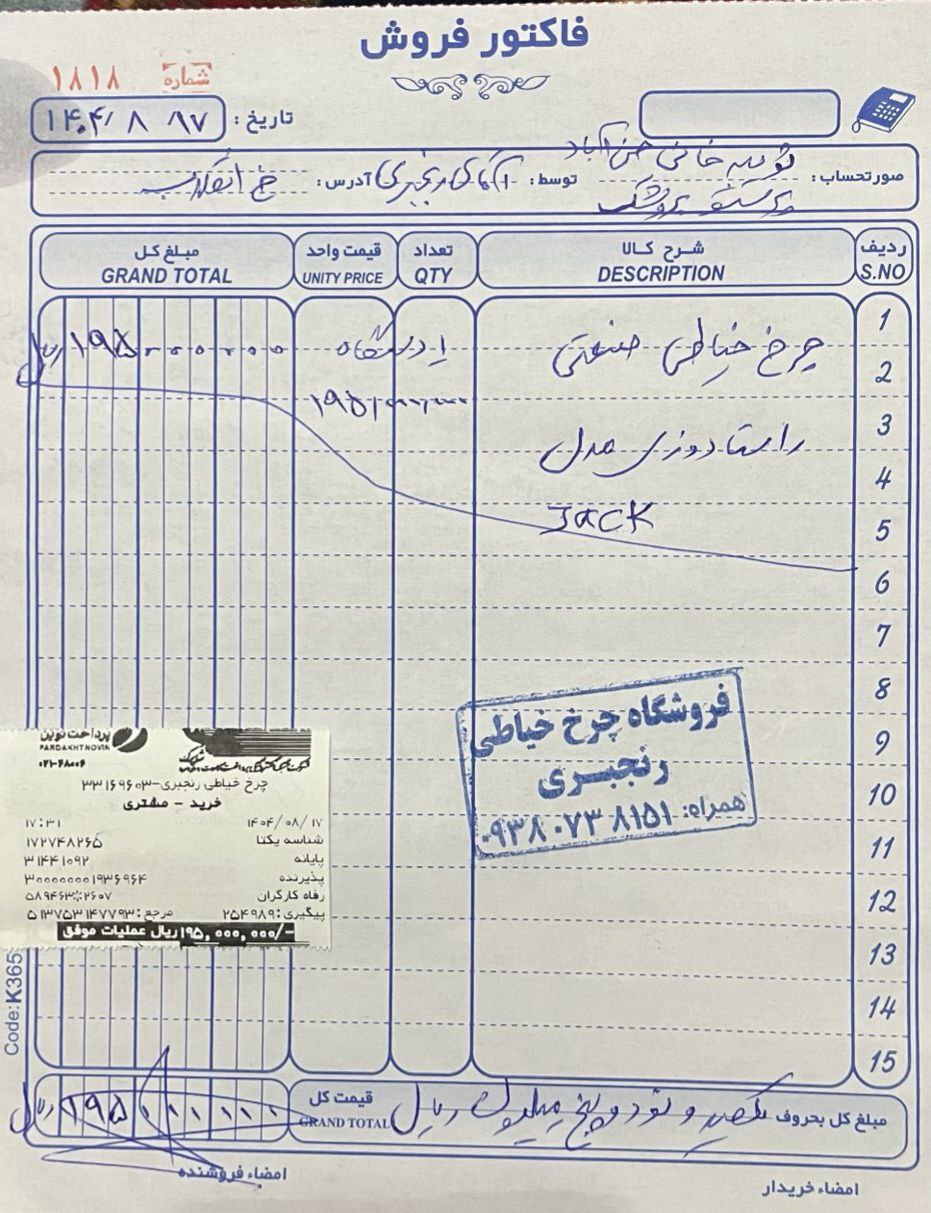 فاکتور فروش
شماره ۱۸۱۸
تاریخ : ۱۴۰۴/۸/۱۷
صورتحساب : حسن آباد
توسط : آقای رنجبری آدرس : خ انقلاب
ردیف شرح کالا تعداد قیمت واحد مبلغ کل
S.NO DESCRIPTION QTY UNITY PRICE GRAND TOTAL
1
2 چرخ خیاطی صنعتی ۱ دستگاه ۱۹۵۰۰۰۰۰۰ ریال
۱۹۵/۰۰۰/۰۰۰
3
4 راستادوزی مدل
5 JACK
6
7
8
9
10
11
12
13
14
15
فروشگاه چرخ خیاطی
رنجبری
همراه: ۰۹۳۸۰۷۳۸۱۵۱
پرداخت نوین
PARDAKHT NOVIN
۰۲۱-۴۸۰۰۶
چرخ خیاطی رنجبری-۳۳۱۶۹۶۰۳
خرید - مشتری
۱۴۰۴/۰۸/۱۷ ۱۷:۳۱
شناسه یکتا ۱۷۲۷۴۸۲۶۵
پایانه ۳۱۴۴۱۰۹۲
پذیرنده ۳۰۰۰۰۰۰۰۱۹۳۶۹۶۴
رفاه کارگران ۵۸۹۴۶۳*۲۶۰۷
پیگیری:۲۵۴۹۸۹ مرجع:۵۱۳۷۵۳۱۴۷۷۹۳
۱۹۵,۰۰۰,۰۰۰/- ریال عملیات موفق
Code: K365
مبلغ کل بحروف یکصد و نود و پنج میلیون ریال قیمت کل ۱۹۵۰۰۰۰۰۰ ریال
GRAND TOTAL
امضاء خریدار امضاء فروشنده